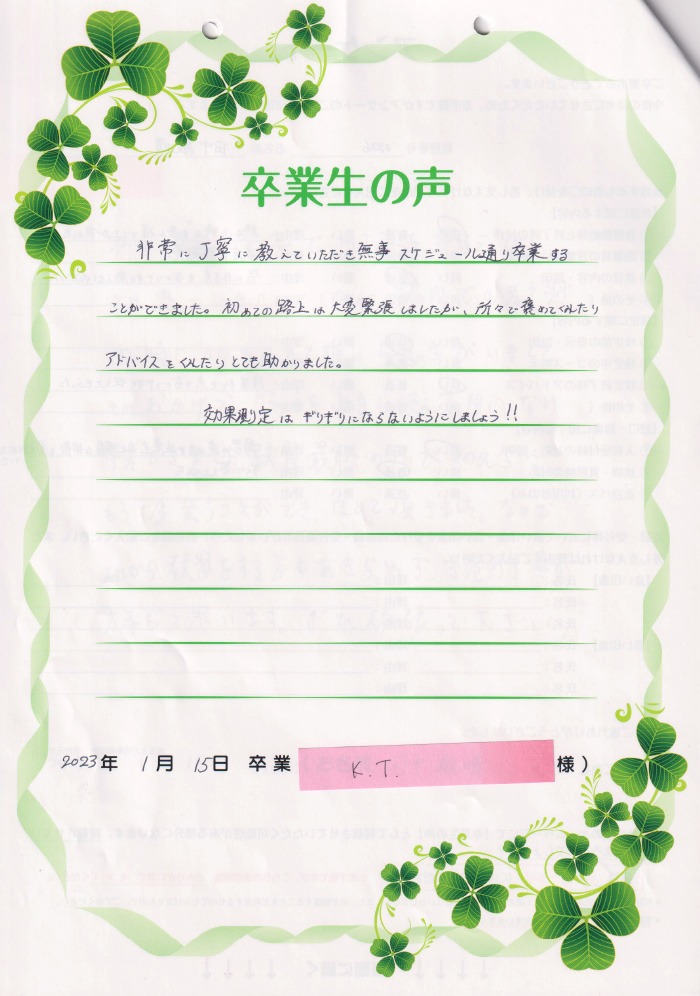 卒業生の声
非常に丁寧に教えていただき無事スケジュール通り卒業する
ことができました。初めての路上は大変緊張しましたが、所々で褒めてくれたり
アドバイスをくれたりとても助かりました。
効果測定はギリギリにならないようにしましょう!!
2023年 1月 15日 卒業 K.T. 様)